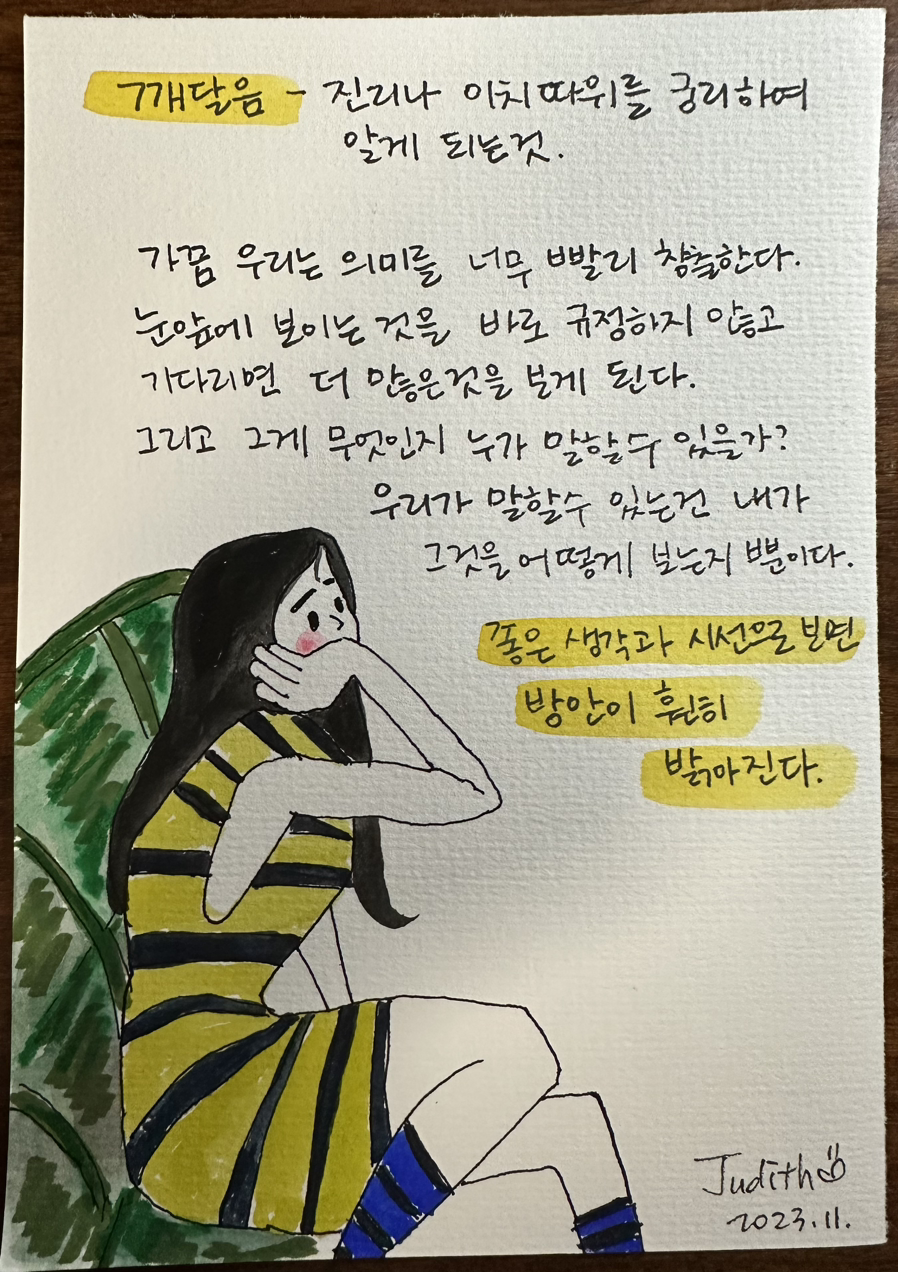 깨달음 - 진리나 이치 따위를 궁리하여
알게 되는것.
가끔 우리는 의미를 너무 빨리 창출한다.
눈앞에 보이는 것을 바로 규정하지 않고
기다리면 더 많은것을 보게 된다.
그리고 그게 무엇인지 누가 말할수 있을가?
우리가 말할수 있는건 내가
그것을 어떻게 보는지 뿐이다.
좋은 생각과 시선으로 보면
방안이 훤히
밝아진다.
Judith
2023.11.